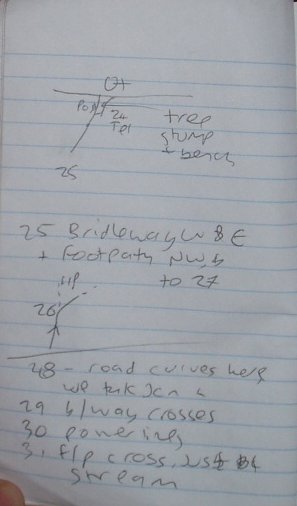 Post
24
tree
stump
+ bench
25
25 Bridleway W & E
+ Footpath NW,
to 27
26
48 - road curves here
we take
29 b/way crosses
30 powerlines
31 f/p cross, just
stream